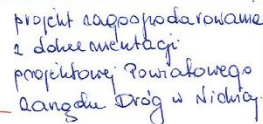 projekt zagospodarowania
z dokumentacji
projektowej Powiatowego
Zarządu Dróg w Nidzicy.